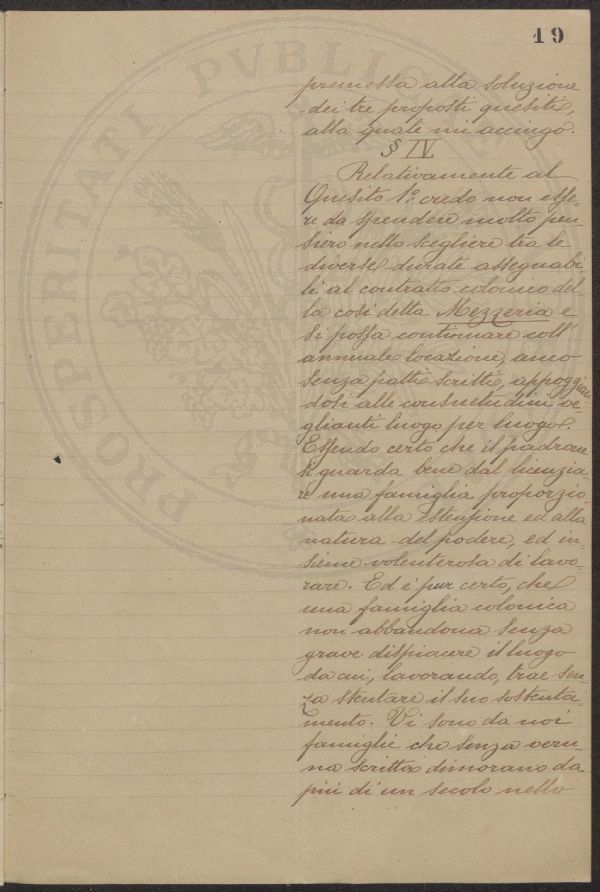 19
PROSPERITATI PVBLIC
premessa alla soluzione
dei tre proposti quesiti,
alla quale mi accingo.
§ IV.
Relativamente al
Quesito 1º credo non esse-
re da spendere molto pen-
siero nello scegliere tra le
diverse durate assegnabi-
li al contratto colonico del
la così detta Mezzeria e
si possa continuare coll'
annuale locazione, anco
senza patti scritti, appoggian
dosi alle consuetudini ve-
glianti luogo per luogo.
Essendo certo che il padrone
si guarda bene dal licenzia-
re una famiglia proporzio-
nata alla estensione ed alla
natura del podere, ed in-
sieme volenterosa di lavo-
rare. Ed è pur certo, che
una famiglia colonica
non abbandona senza
grave dispiacere il luogo
da cui, lavorando, trae sen-
za stentare il suo sostenta
mento. Vi sono da noi
famiglie che senza veru-
na scritta dimorano da
più di un secolo nello